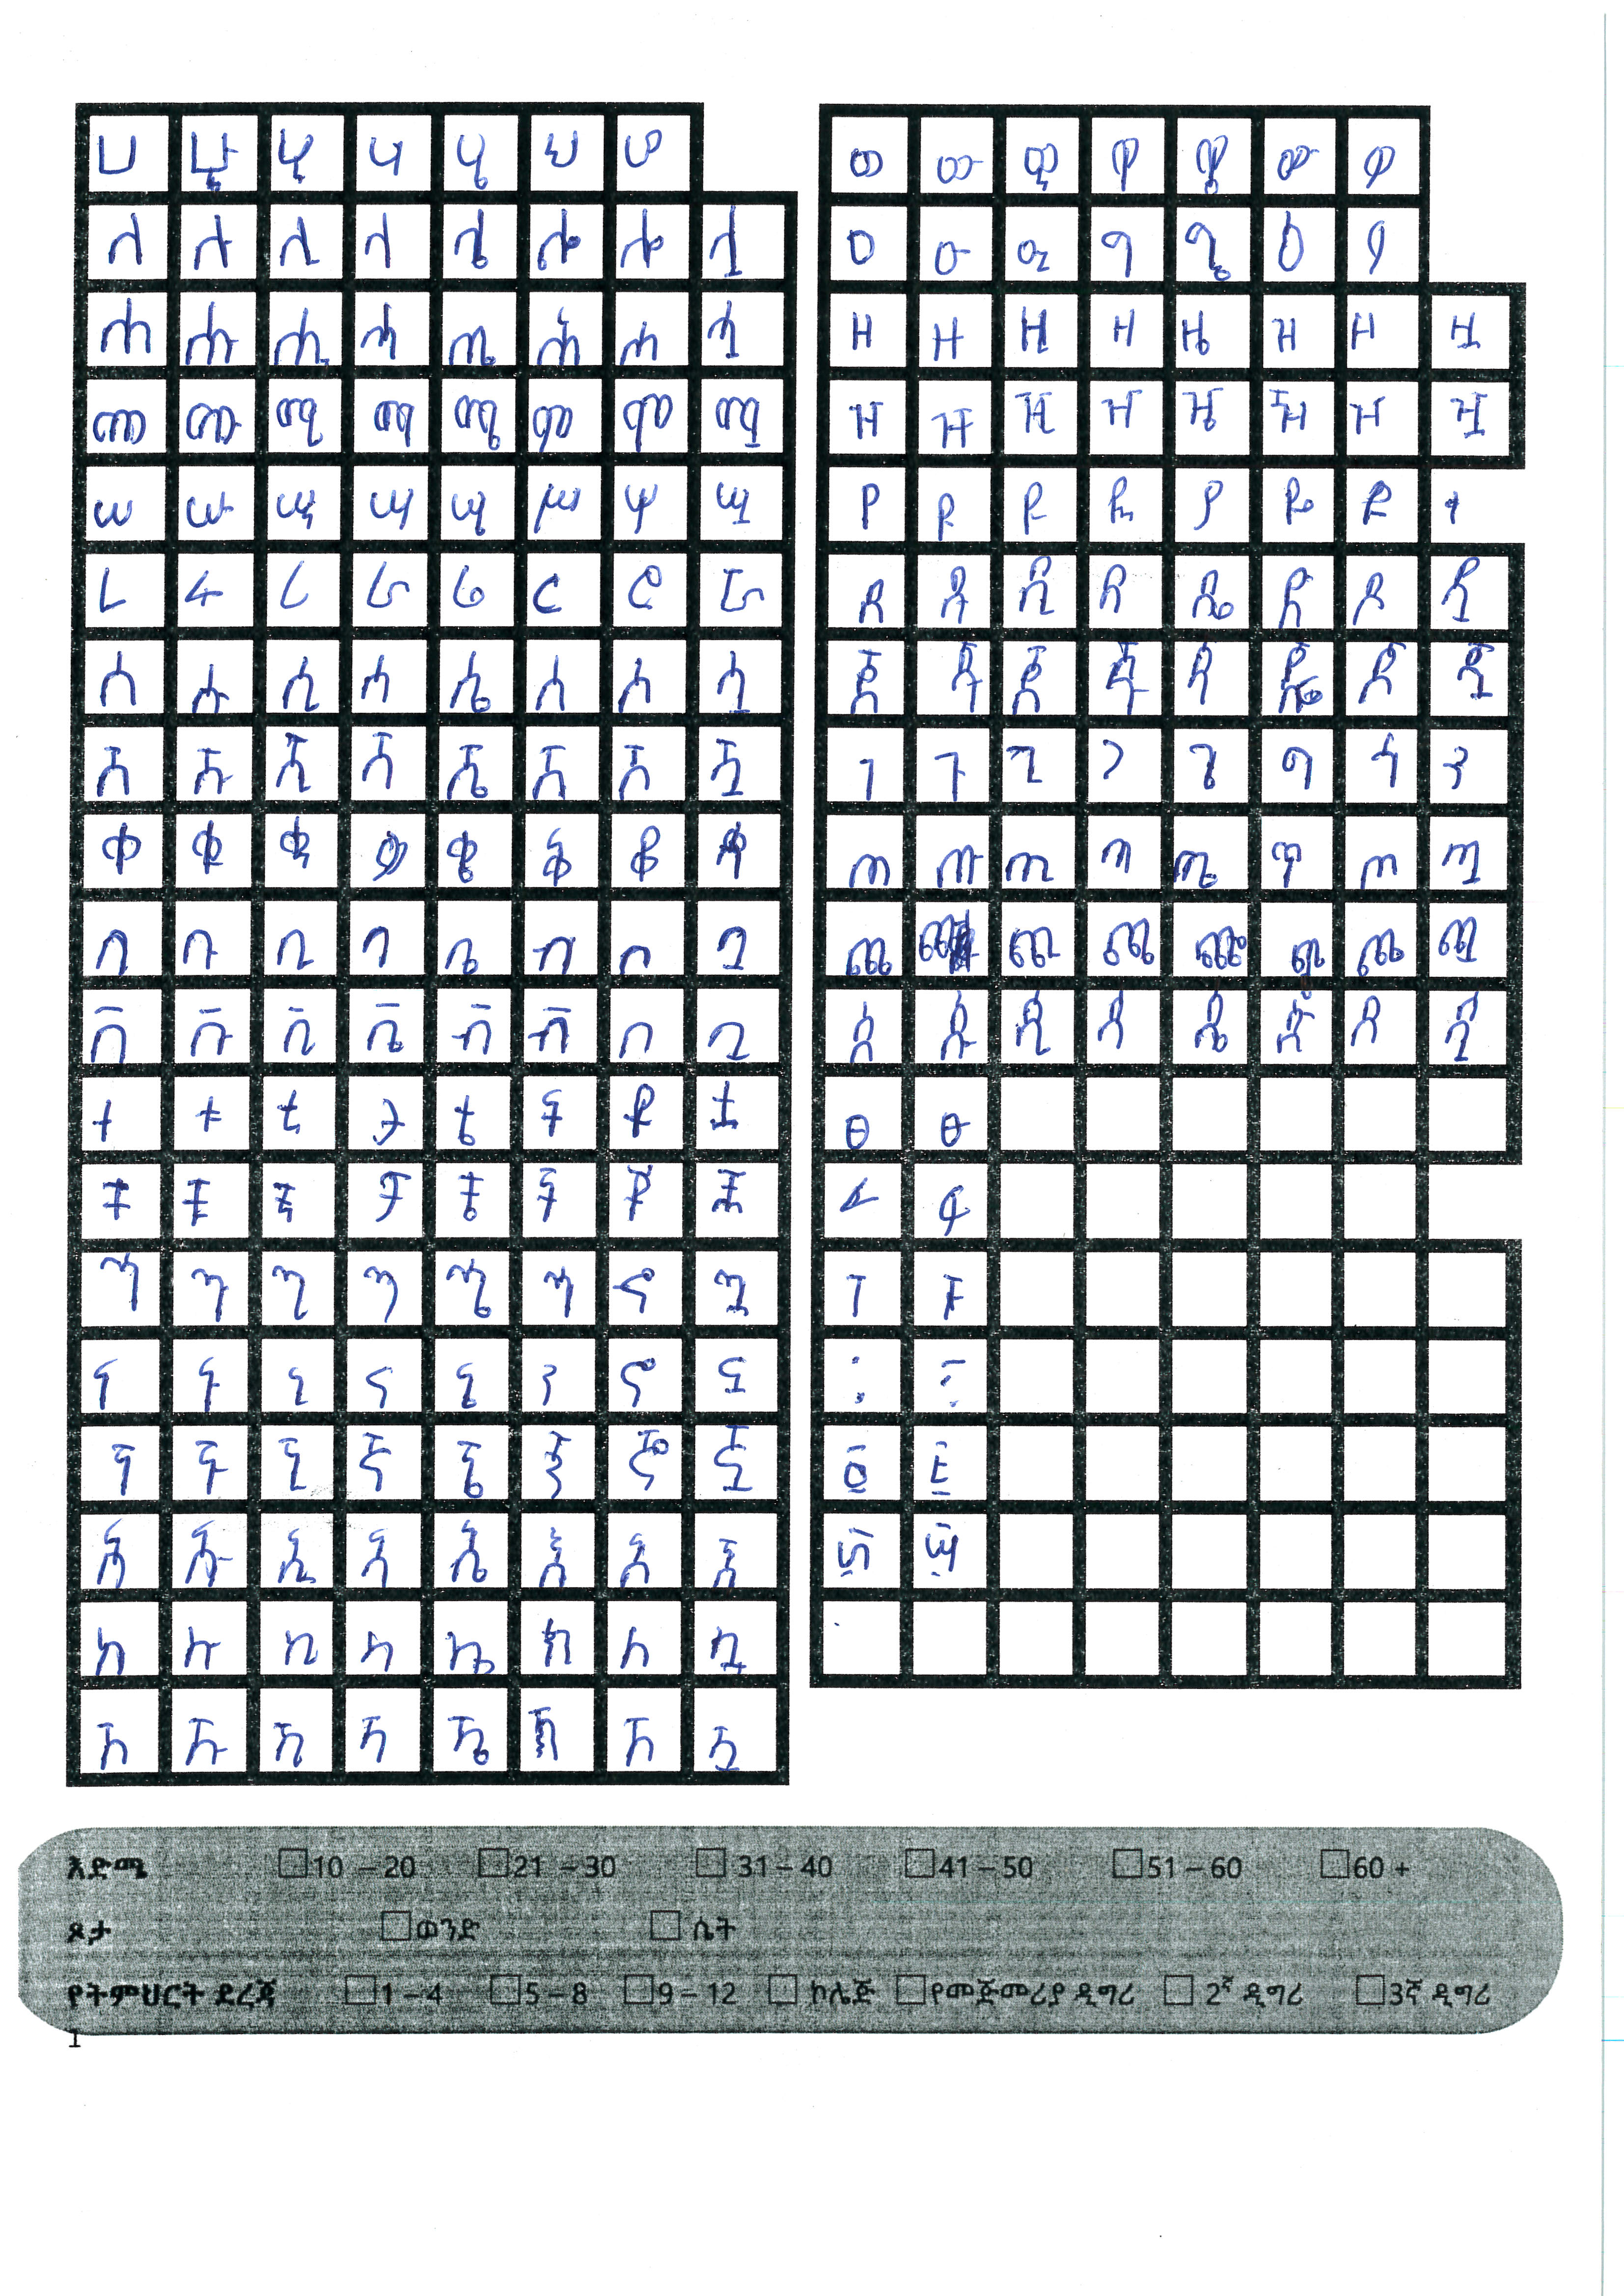 ሀ ሁ ሂ ሃ ሄ ህ ሆ
ለ ሉ ሊ ላ ሌ ሎ ሏ
ሐ ሑ ሒ ሓ ሔ ሕ ሗ
መ ሙ ሚ ማ ሜ ም ሞ ሟ
ሠ ሡ ሢ ሣ ሤ ሥ ሦ ሧ
ረ ሩ ሪ ራ ሬ ር ሮ ሯ
ሰ ሱ ሲ ሳ ሴ ስ ሶ ሷ
ሸ ሹ ሺ ሻ ሼ ሽ ሾ ሿ
ቀ ቁ ቂ ቃ ቄ ቅ ቆ ቋ
በ ቡ ቢ ባ ቤ ብ ቦ ቧ
ቨ ቩ ቪ ቬ
ተ ቱ ቲ ታ ቴ ት ቶ ቷ
ቸ ቹ ቺ ቻ ቼ ች ቾ ቿ
ኅ ኋ
ነ ኑ ኒ ና ኔ ን ኖ ኗ
ኘ ኙ ኚ ኛ ኜ ኝ ኞ ኟ
አ ኡ ኢ ኣ ኤ እ ኦ ኧ
ከ ኩ ኪ ካ ኬ ክ ኮ ኳ
ኸ ኹ ኺ ኻ ኼ ኽ ኾ ዃ
ወ ዉ ዊ ዋ ዌ ው ዎ
ዐ ዑ ዒ ዓ ዔ ዕ ዖ
ዘ ዙ ዚ ዛ ዜ ዝ ዞ ዟ
ዠ ዡ ዢ ዣ ዤ ዥ ዦ ዧ
የ ዩ
ደ ዱ ዲ ዳ ዴ ድ ዶ ዷ
ጀ ጁ ጂ ጆ ጇ
ገ ጉ ጊ ጋ ጌ ግ ጎ
ጠ ጡ ጢ ጣ ጤ ጥ ጦ ጧ
ጨ ጪ ጫ ጬ ጭ ጮ ጯ
ጰ ጱ ጲ ጳ ጴ ጵ ጶ ጷ
ፀ ፁ
ፈ ፋ
ፐ ፑ
፡ ፣
፩ ፪
እድሜ 10 – 20 21 – 30 31 – 40 41 – 50 51 – 60 60 +
ጾታ ወንድ ሴት
የትምህርት ደረጃ 1 – 4 5 – 8 9 – 12 ኮሌጅ የመጅመሪያ ዲግሪ 2ኛ ዲግሪ 3ኛ ዲግሪ
1